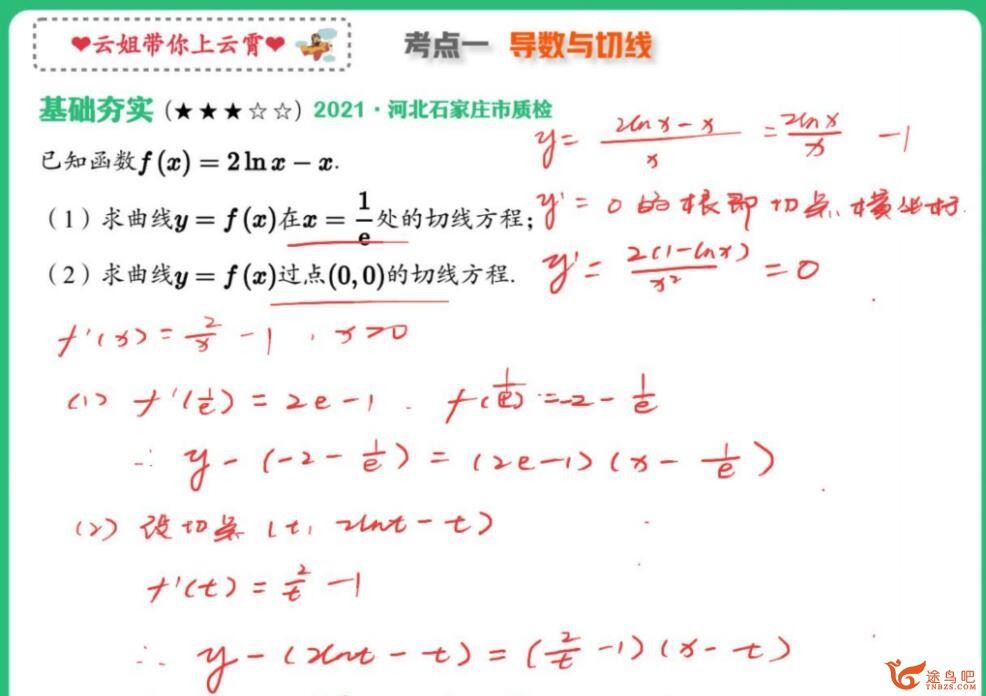 ❤云姐带你上云霄❤
考点一 导数与切线
基础夯实(★★★☆☆) 2021·河北石家庄市质检
已知函数f(x)=2lnx-x.
(1)求曲线y=f(x)在x=1/e处的切线方程;
(2)求曲线y=f(x)过点(0,0)的切线方程.
y=(2lnx-x)/x=2lnx/x -1
y'=0的根即切点横坐标
y'=2(1-lnx)/x²=0
f'(x)=2/x-1,x>0
(1) f'(1/e)=2e-1. f(1/e)=-2-1/e
∴ y-(-2-1/e)=(2e-1)(x-1/e)
(2) 设切点(t, 2lnt-t)
f'(t)=2/t-1
∴ y-(2lnt-t)=(2/t-1)(x-t)
途鸟吧
TNBZS.COM